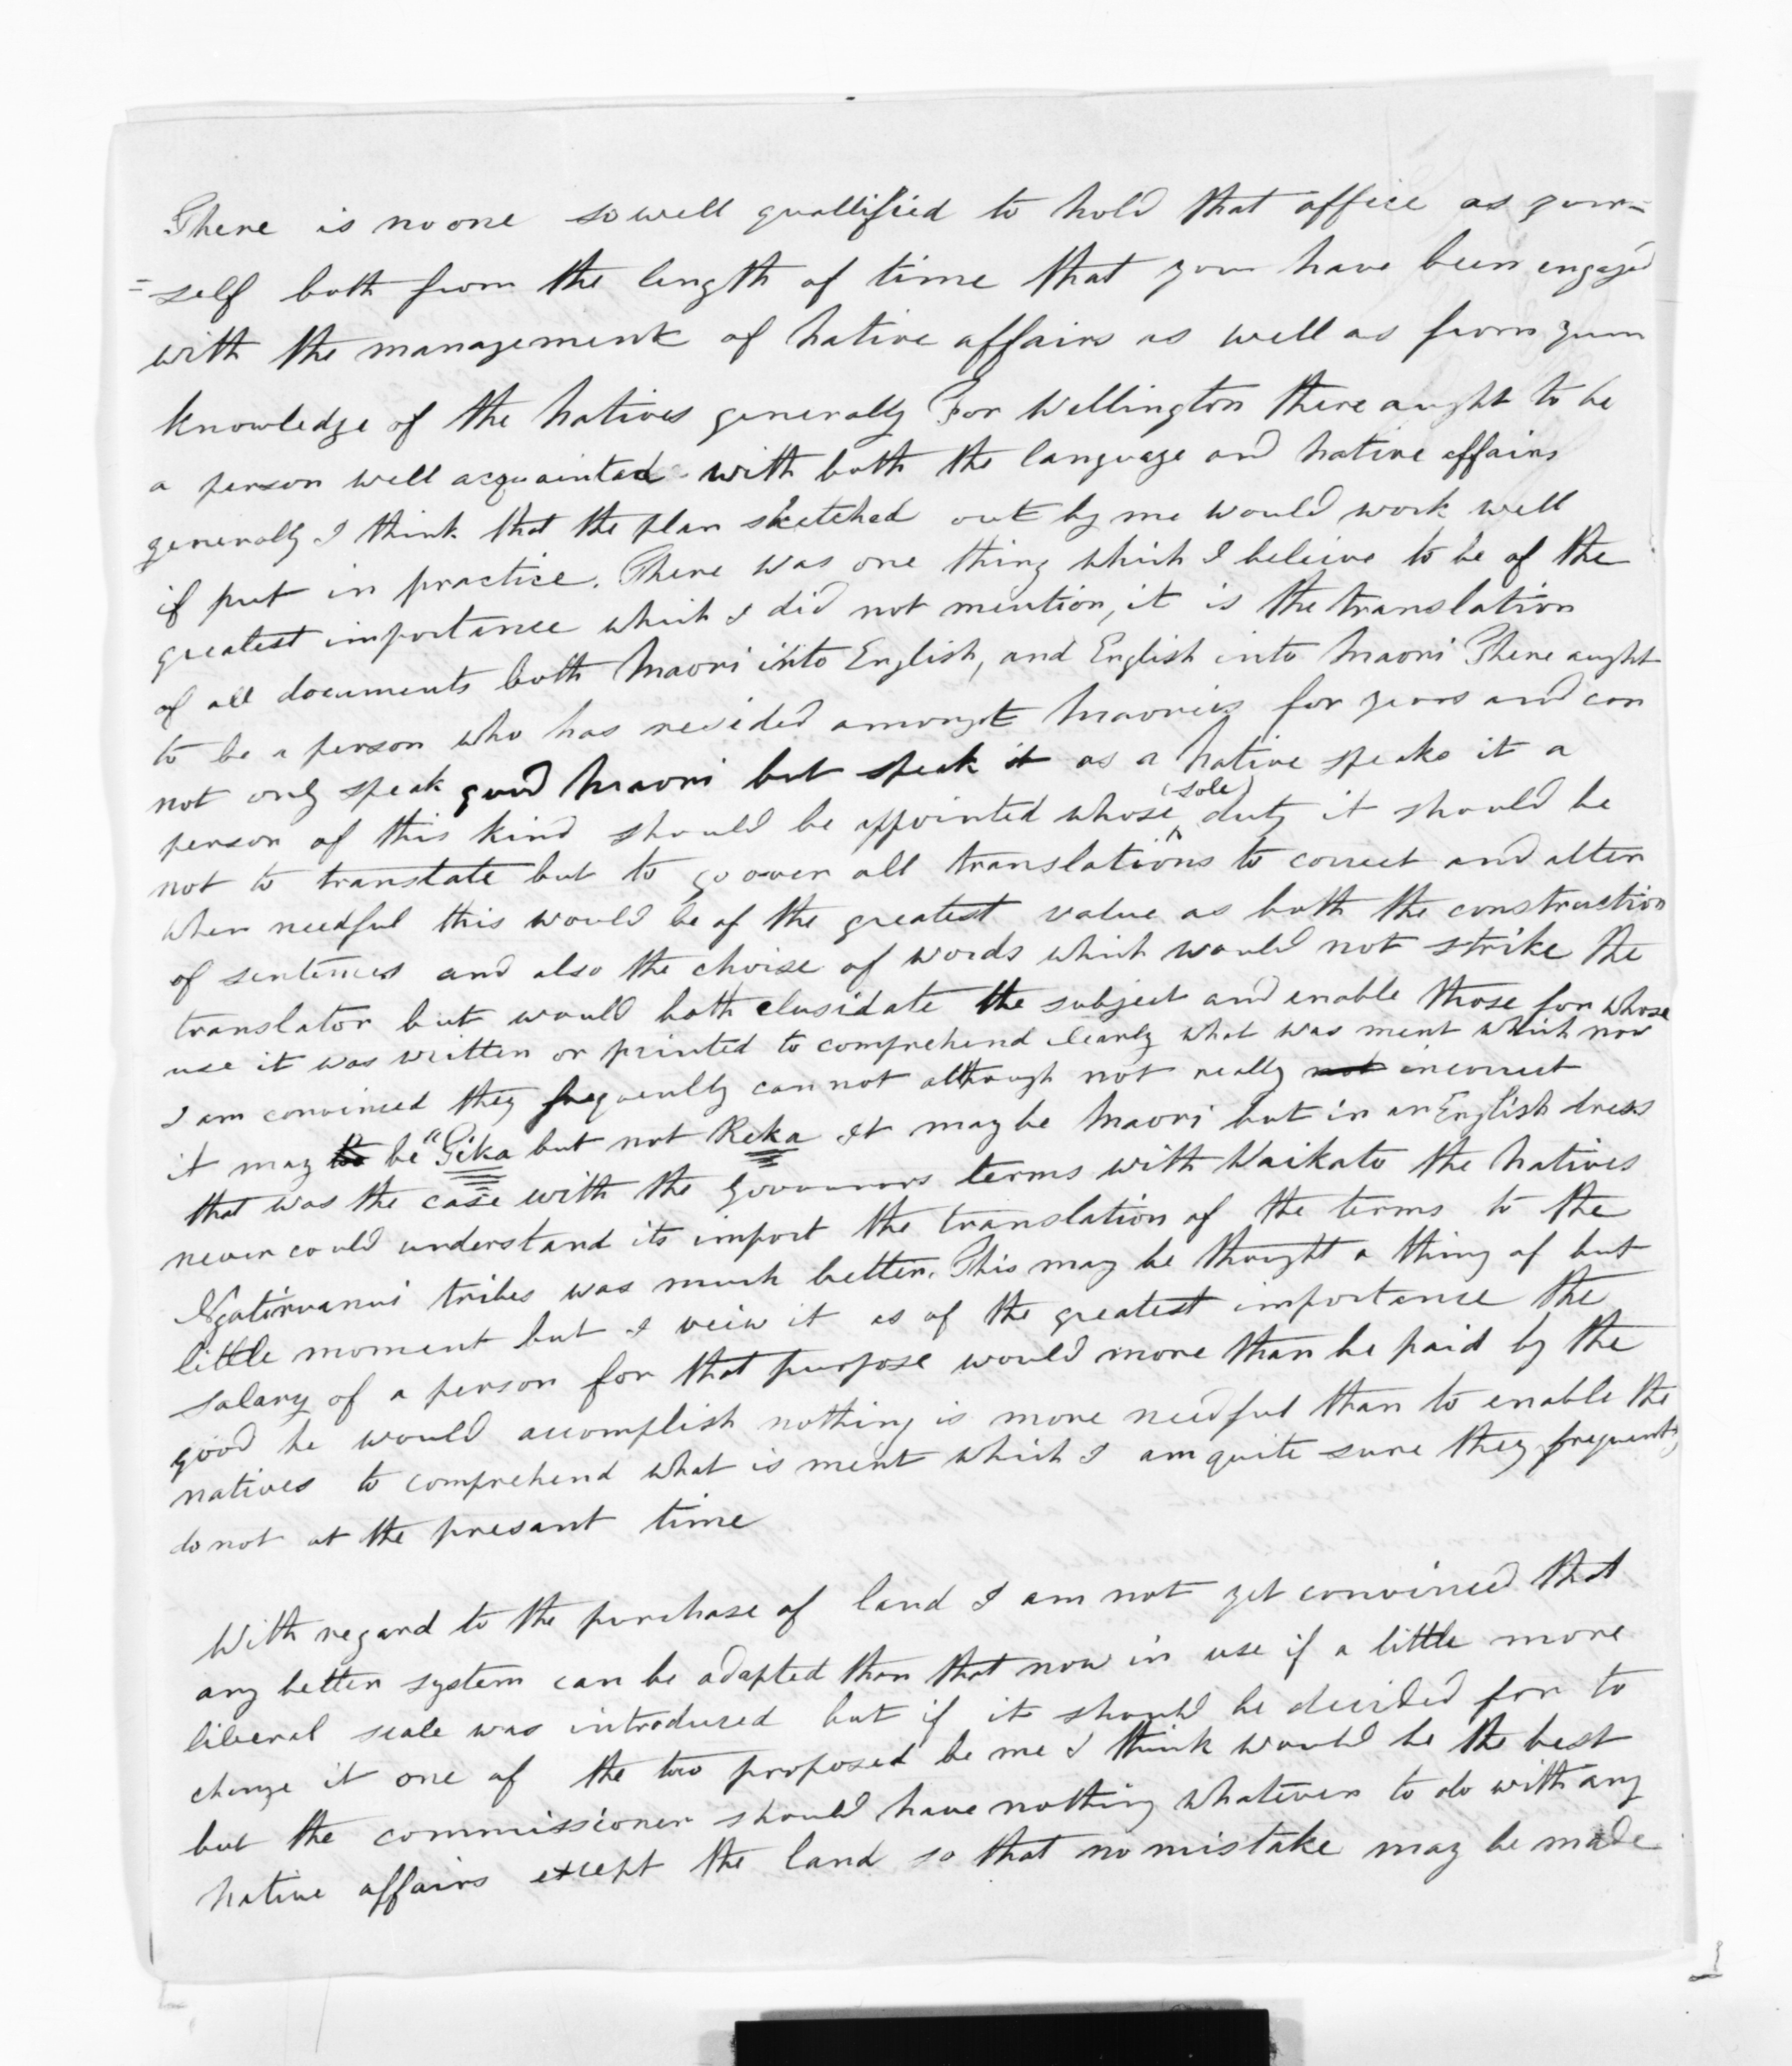 There is no one so well quallified to hold that office as your=
=self both from the length of time that you have been engaged
with the management of native affairs as well as from your
knowledge of the natives generally For Wellington there aught to be
a person well acquainted with both the language and native affairs
generally I think that the plan sketched out by me would work well
if put in practice. There was one thing which I beleive to be of the
greatest importance which I did not mention, it is the translation
of all documents both Maori into English, and English into Maori There aught
to be a person who has resided amongst Maories for years and can
not only speak good Maori but speak it as a native speaks it a
person of this kind should be appointed whose (sole) duty it should be
not to translate but to go over all translations to correct and alter
when needful this would be of the greatest value as both the construction
of sentences and also the choise of words which would not strike the
translator but would both elusidate the subject and enable those for whose
use it was written or printed to comprehend clearly what was ment which now
I am convinced they frequently can not although not really not incorrect
it may to be "Tika but not Reka It may be Maori but in an English dress
that was the case with the Governors terms with Waikato the natives
never could understand its import the translation of the terms to the
Ngatiruanui tribes was much better. This may be thought a thing of but
little moment but I veiw it as of the greatest importance the
salary of a person for that purpose would more than be paid by the
good he would accomplish nothing is more needful than to enable the
natives to comprehend what is ment which I am quite sure they frequently
do not at the presant time
With regard to the purchase of land I am not yet convinced that
any better system can be adapted than that now in use if a little more
liberal scale was introduced but if it should be decided for to
change it one of the two proposed be me I think would be the best
but the commissioner should have nothing whatever to do with any
native affairs except the land so that no mistake may be made